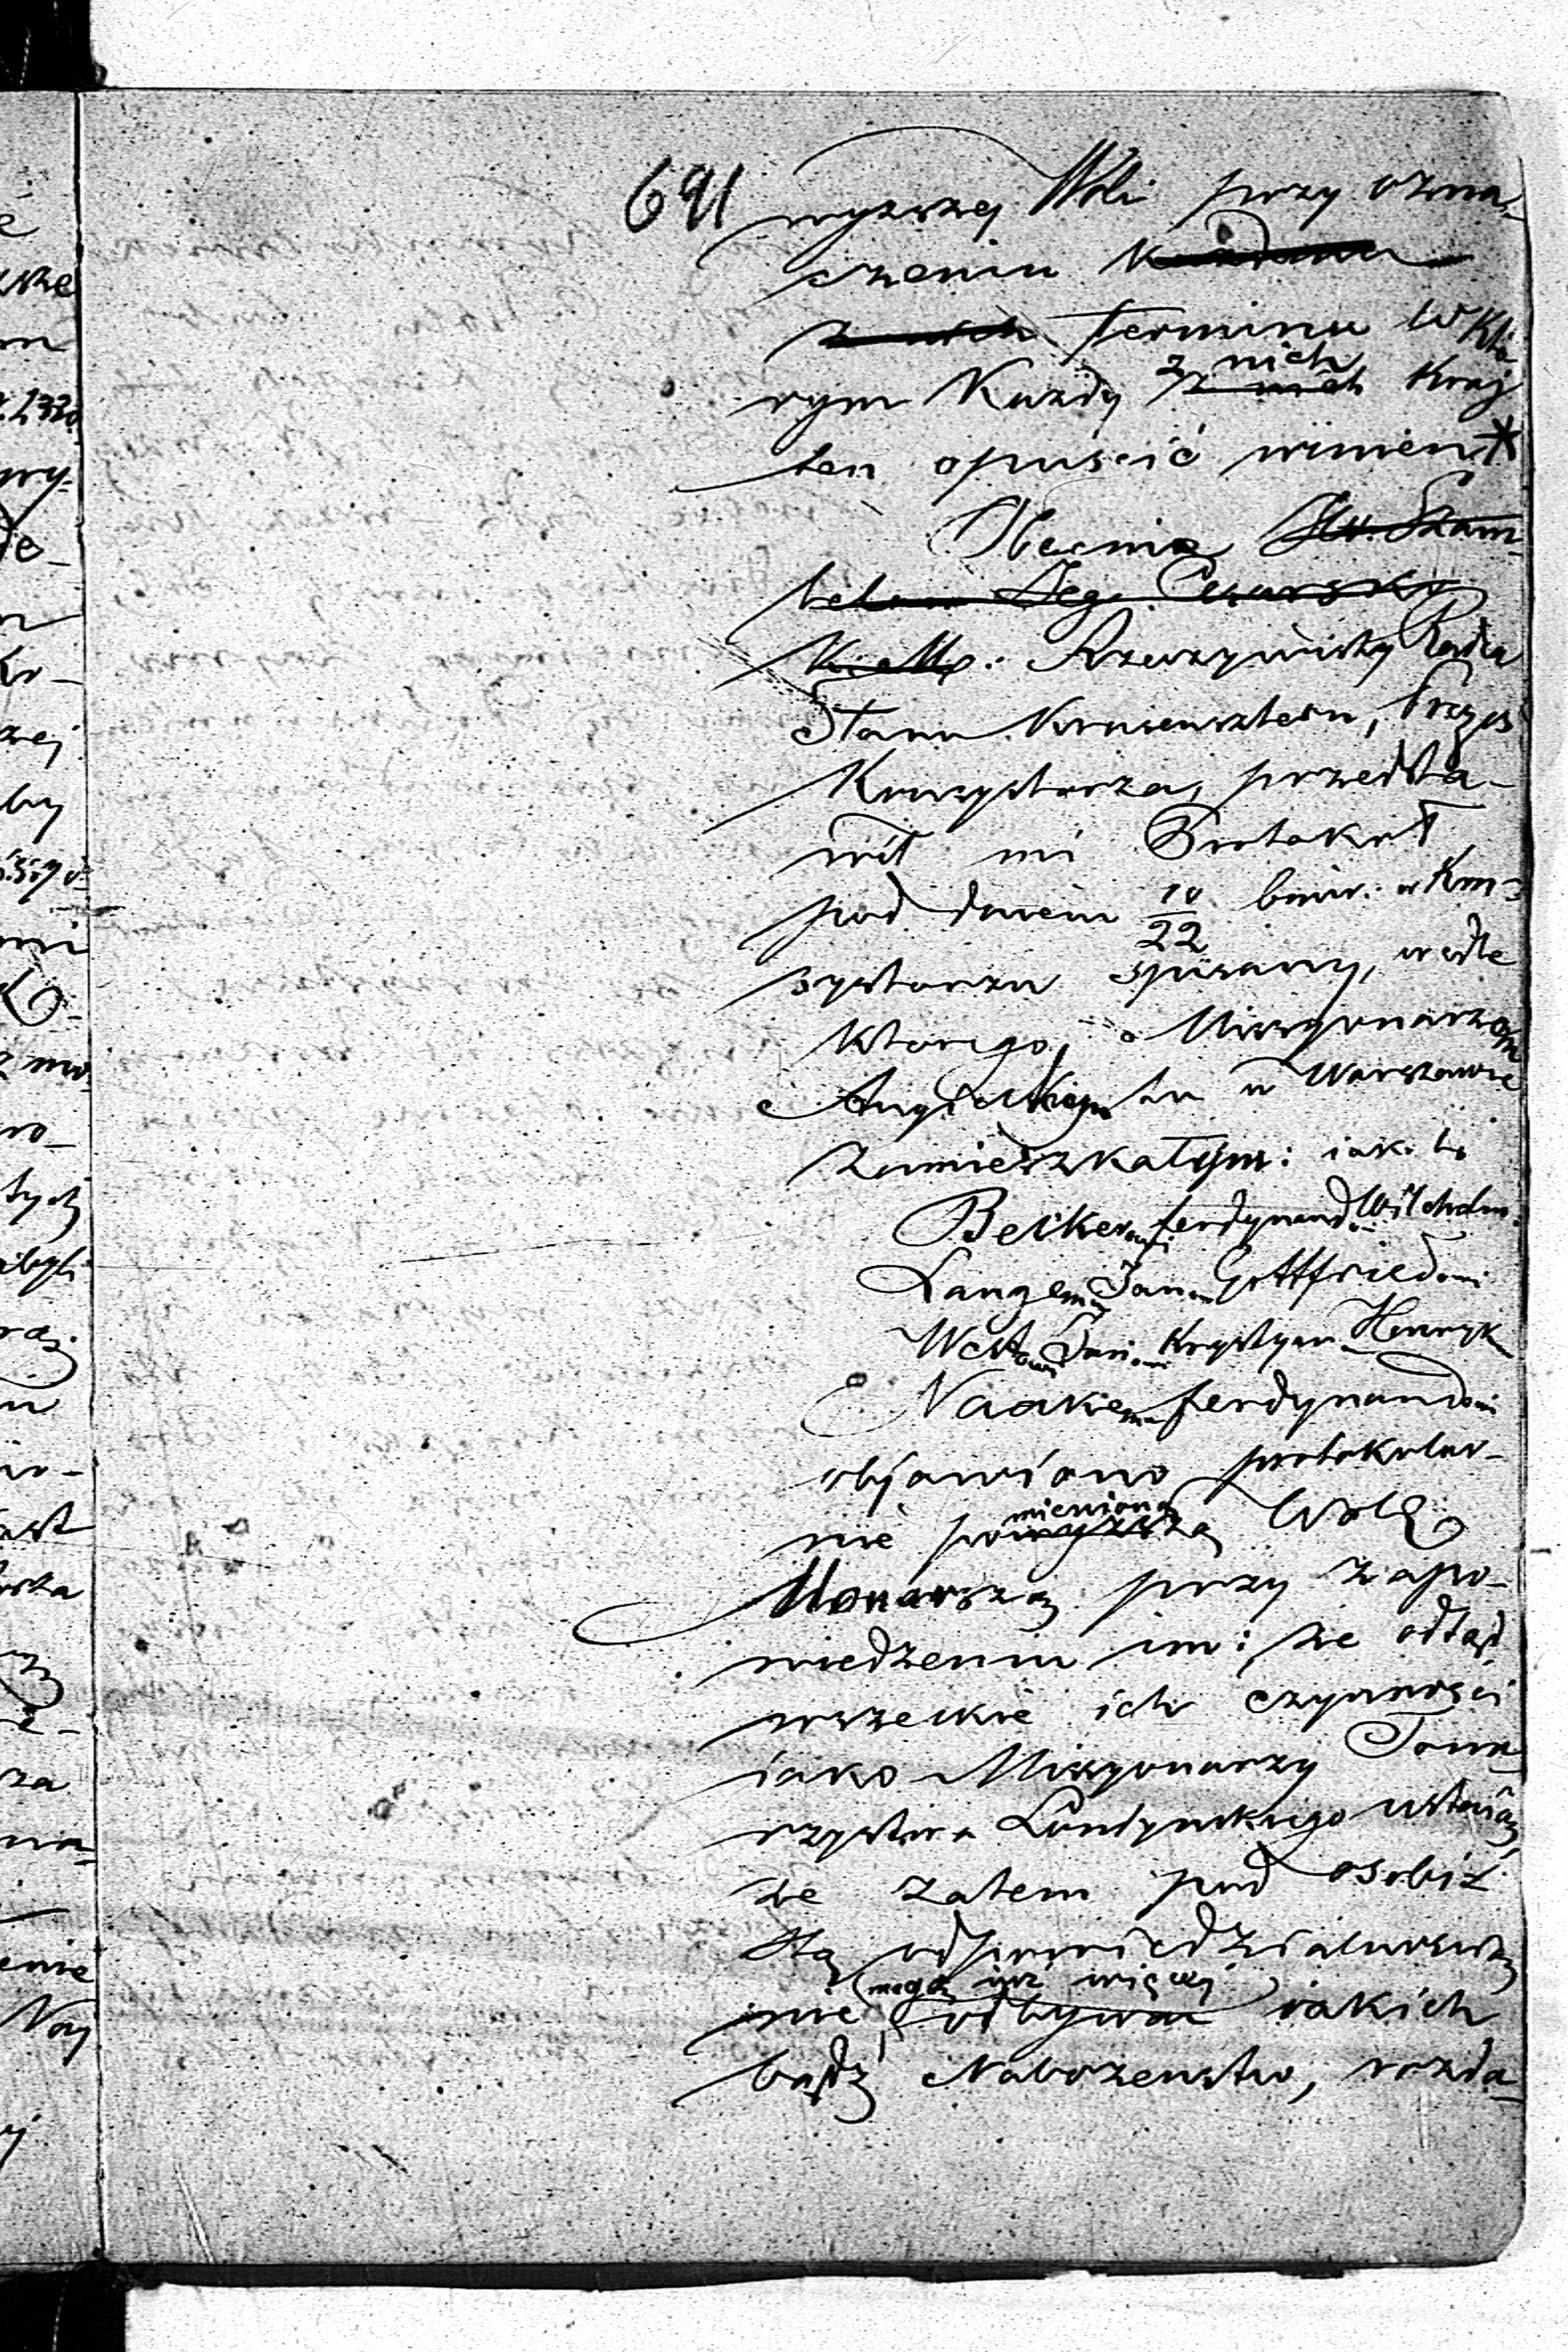 691
wyższej Woli przy ozna-
czeniu
terminu w któ
rym Każdy z nich Kraj
ten opuścić winien *
Obecnie JW. Szam-
belan Jego Cesarsko
K. Mo: Rzeczywisty Radca
Stanu Krusensztern, Prezes
Konsystorza, przedsta-
wił mi Protokół
pod dniem 10/22 b.m. w Kon-
systorzu spisany, wedle
którego, Missyonarzom
Angielskiem tu w Warszawie
zamieszkałym: iak to
Beckerowi Ferdynand. Wilchelm.
Langemu Janowi Gottfriedowi
Westowi Janowi Krystyan Henryk
Naakiemu Ferdynandowi
obiawiono protokular-
nie pomienioną Wolę
Monarszą przy zapo-
wiedzeniu im: że odtąd
wszelkie ich czynności
iako Missyonarzy Towa
rzystwa Londyńskiego ustaią,
że zatem pod osobiś
stą odpowiedzialnością
nie mogą iuż więcej odbywać iakich
bądź Nabożeństw, rozda-